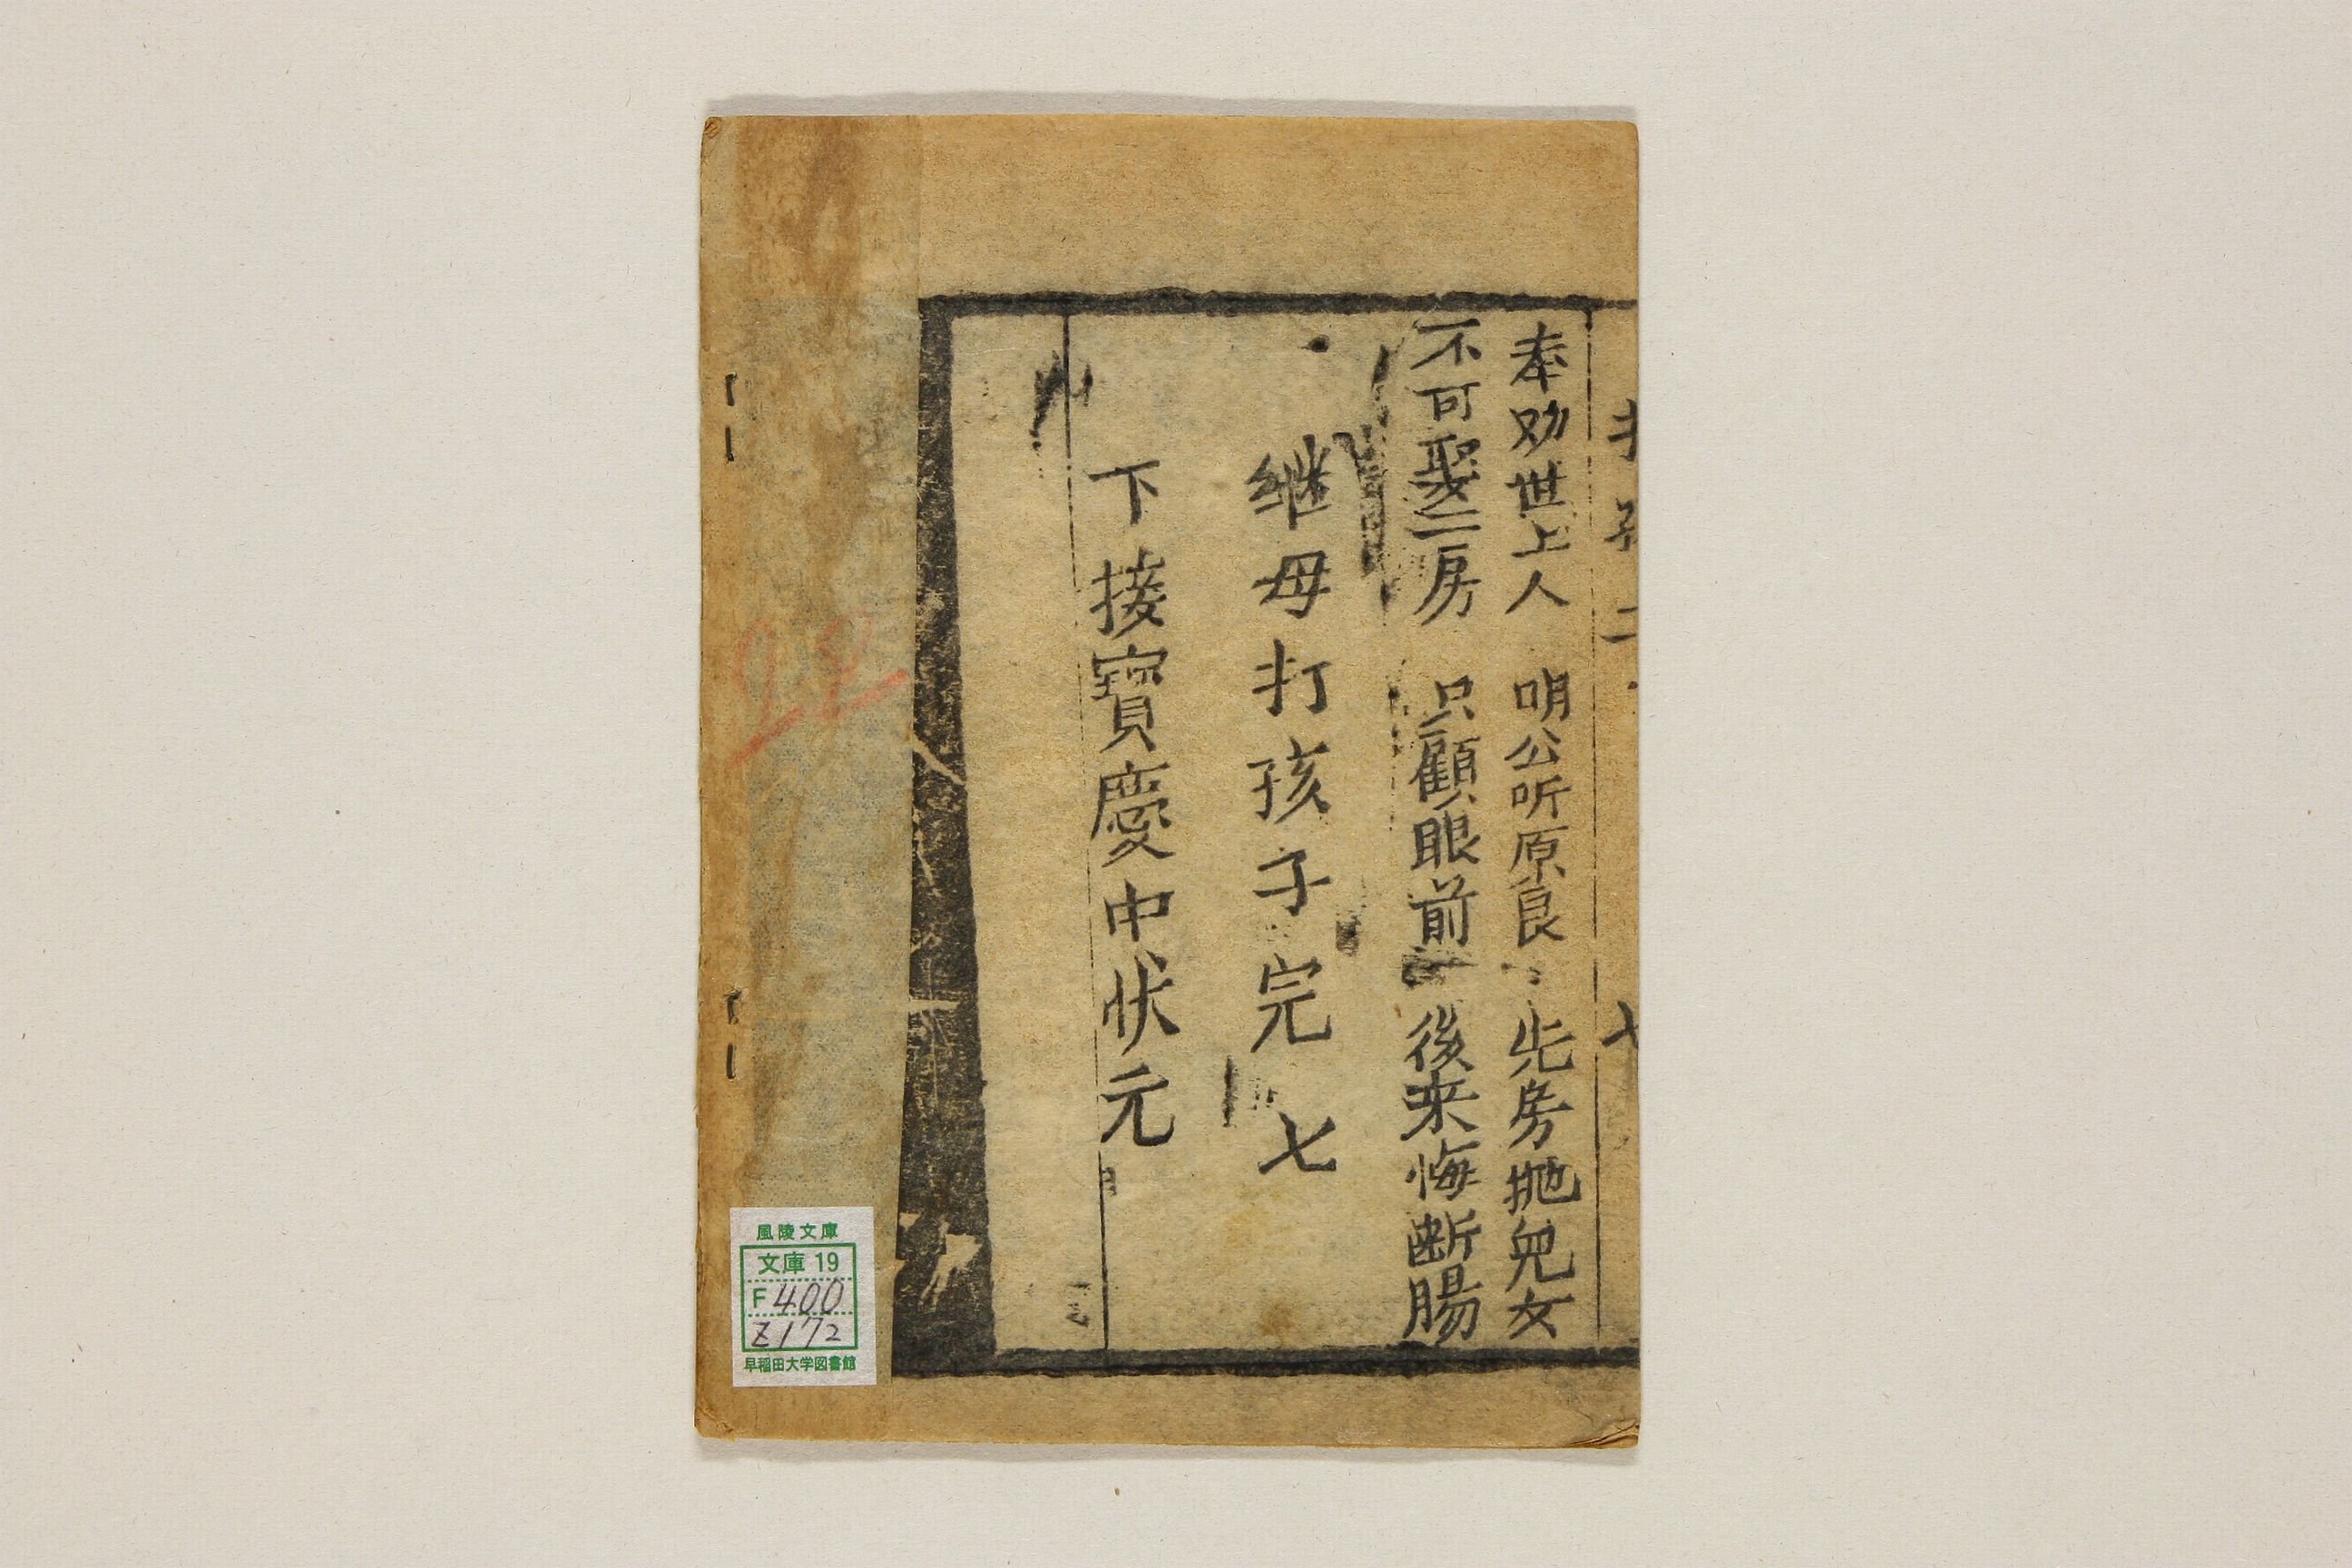 奉劝世上人 明公听原良 先房抛兒女
不可娶二房 只顧眼前 後来悔断腸
继母打孩子完 七
下接寳慶中状元
22
風陵文庫
文庫 19
F 400
Z172
早稲田大学図書館